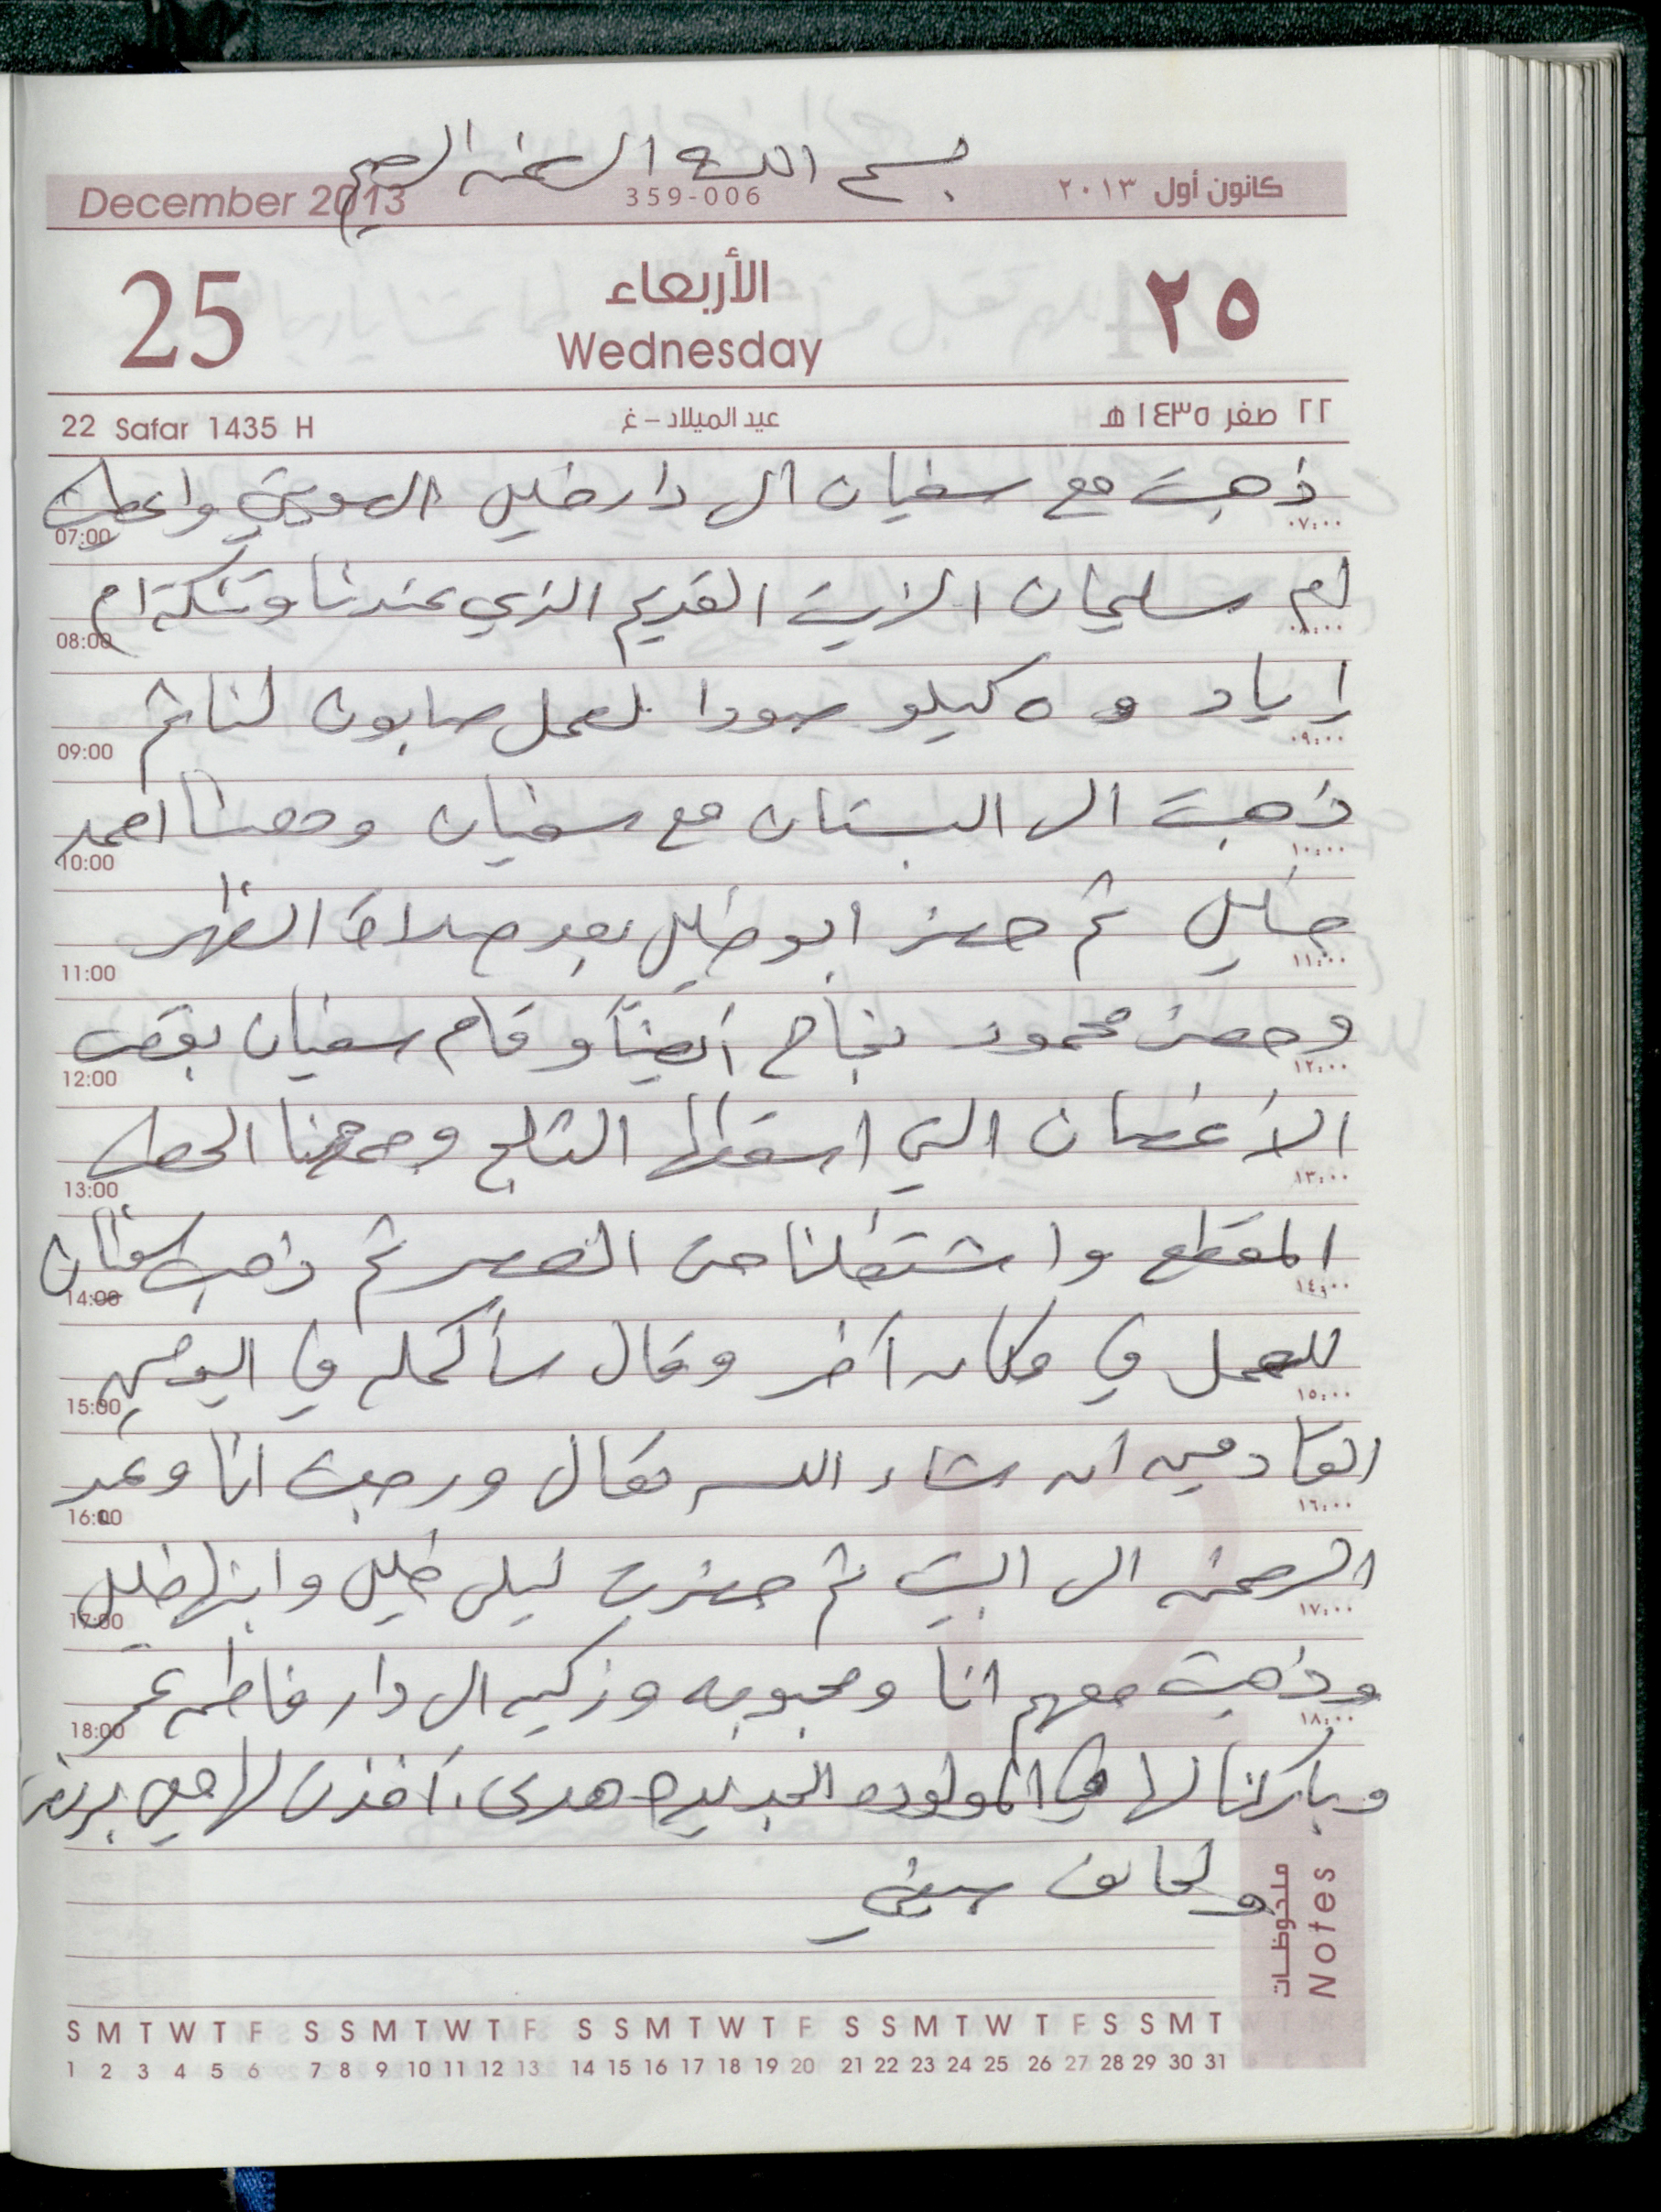 بسم الله الرحمن الرحيم
December 2013 359-006 كانون أول ٢٠١٣
25 الأربعاء ٢٥
Wednesday
22 Safar 1435 H عيد الميلاد - غ ٢٢ صفر ١٤٣٥ هـ
ذهبت مع سفيان الى دار خليل واعطيت
07:00 ٠٧:٠٠
ام سليمان الزيت القديم الذي عندنا وتنكة ام
08:00 ٠٨:٠٠
اياد و ٥ كيلو صودا لعمل صابون لنا ثم
09:00 ٠٩:٠٠
ذهبت الى البستان مع سفيان ومعنا احمد
10:00 ١٠:٠٠
خليل ثم حضر ابو خليل بعد صلاة الظهر
11:00 ١١:٠٠
وحضر محمود نجاح أيضاً وقام سفيان بقص
12:00 ١٢:٠٠
الأغصان التي اسقطها الثلج وجمعنا الحطب
13:00 ١٣:٠٠
المقطع واشتغلنا حتى العصر ثم ذهب سفيان
14:00 ١٤:٠٠
للعمل في مكان آخر وقال سأكمله في اليومين
15:00 ١٥:٠٠
القادمين ان شاء الله تعالى ورجعت انا وعبد
16:00 ١٦:٠٠
الرحمن الى البيت ثم حضرت ليلى خليل وابنها خليل
17:00 ١٧:٠٠
وذهبت معهم انا ومحبوبه وزكيه الى دار فاطمه عمر
18:00 ١٨:٠٠
وباركنا لها في المولوده الجديده هدى، أخذن لها معي
ولحاف
ملحوظات Notes
S M T W T F S S M T W T F S S M T W T F S S M T W T F S S M T
1 2 3 4 5 6 7 8 9 10 11 12 13 14 15 16 17 18 19 20 21 22 23 24 25 26 27 28 29 30 31